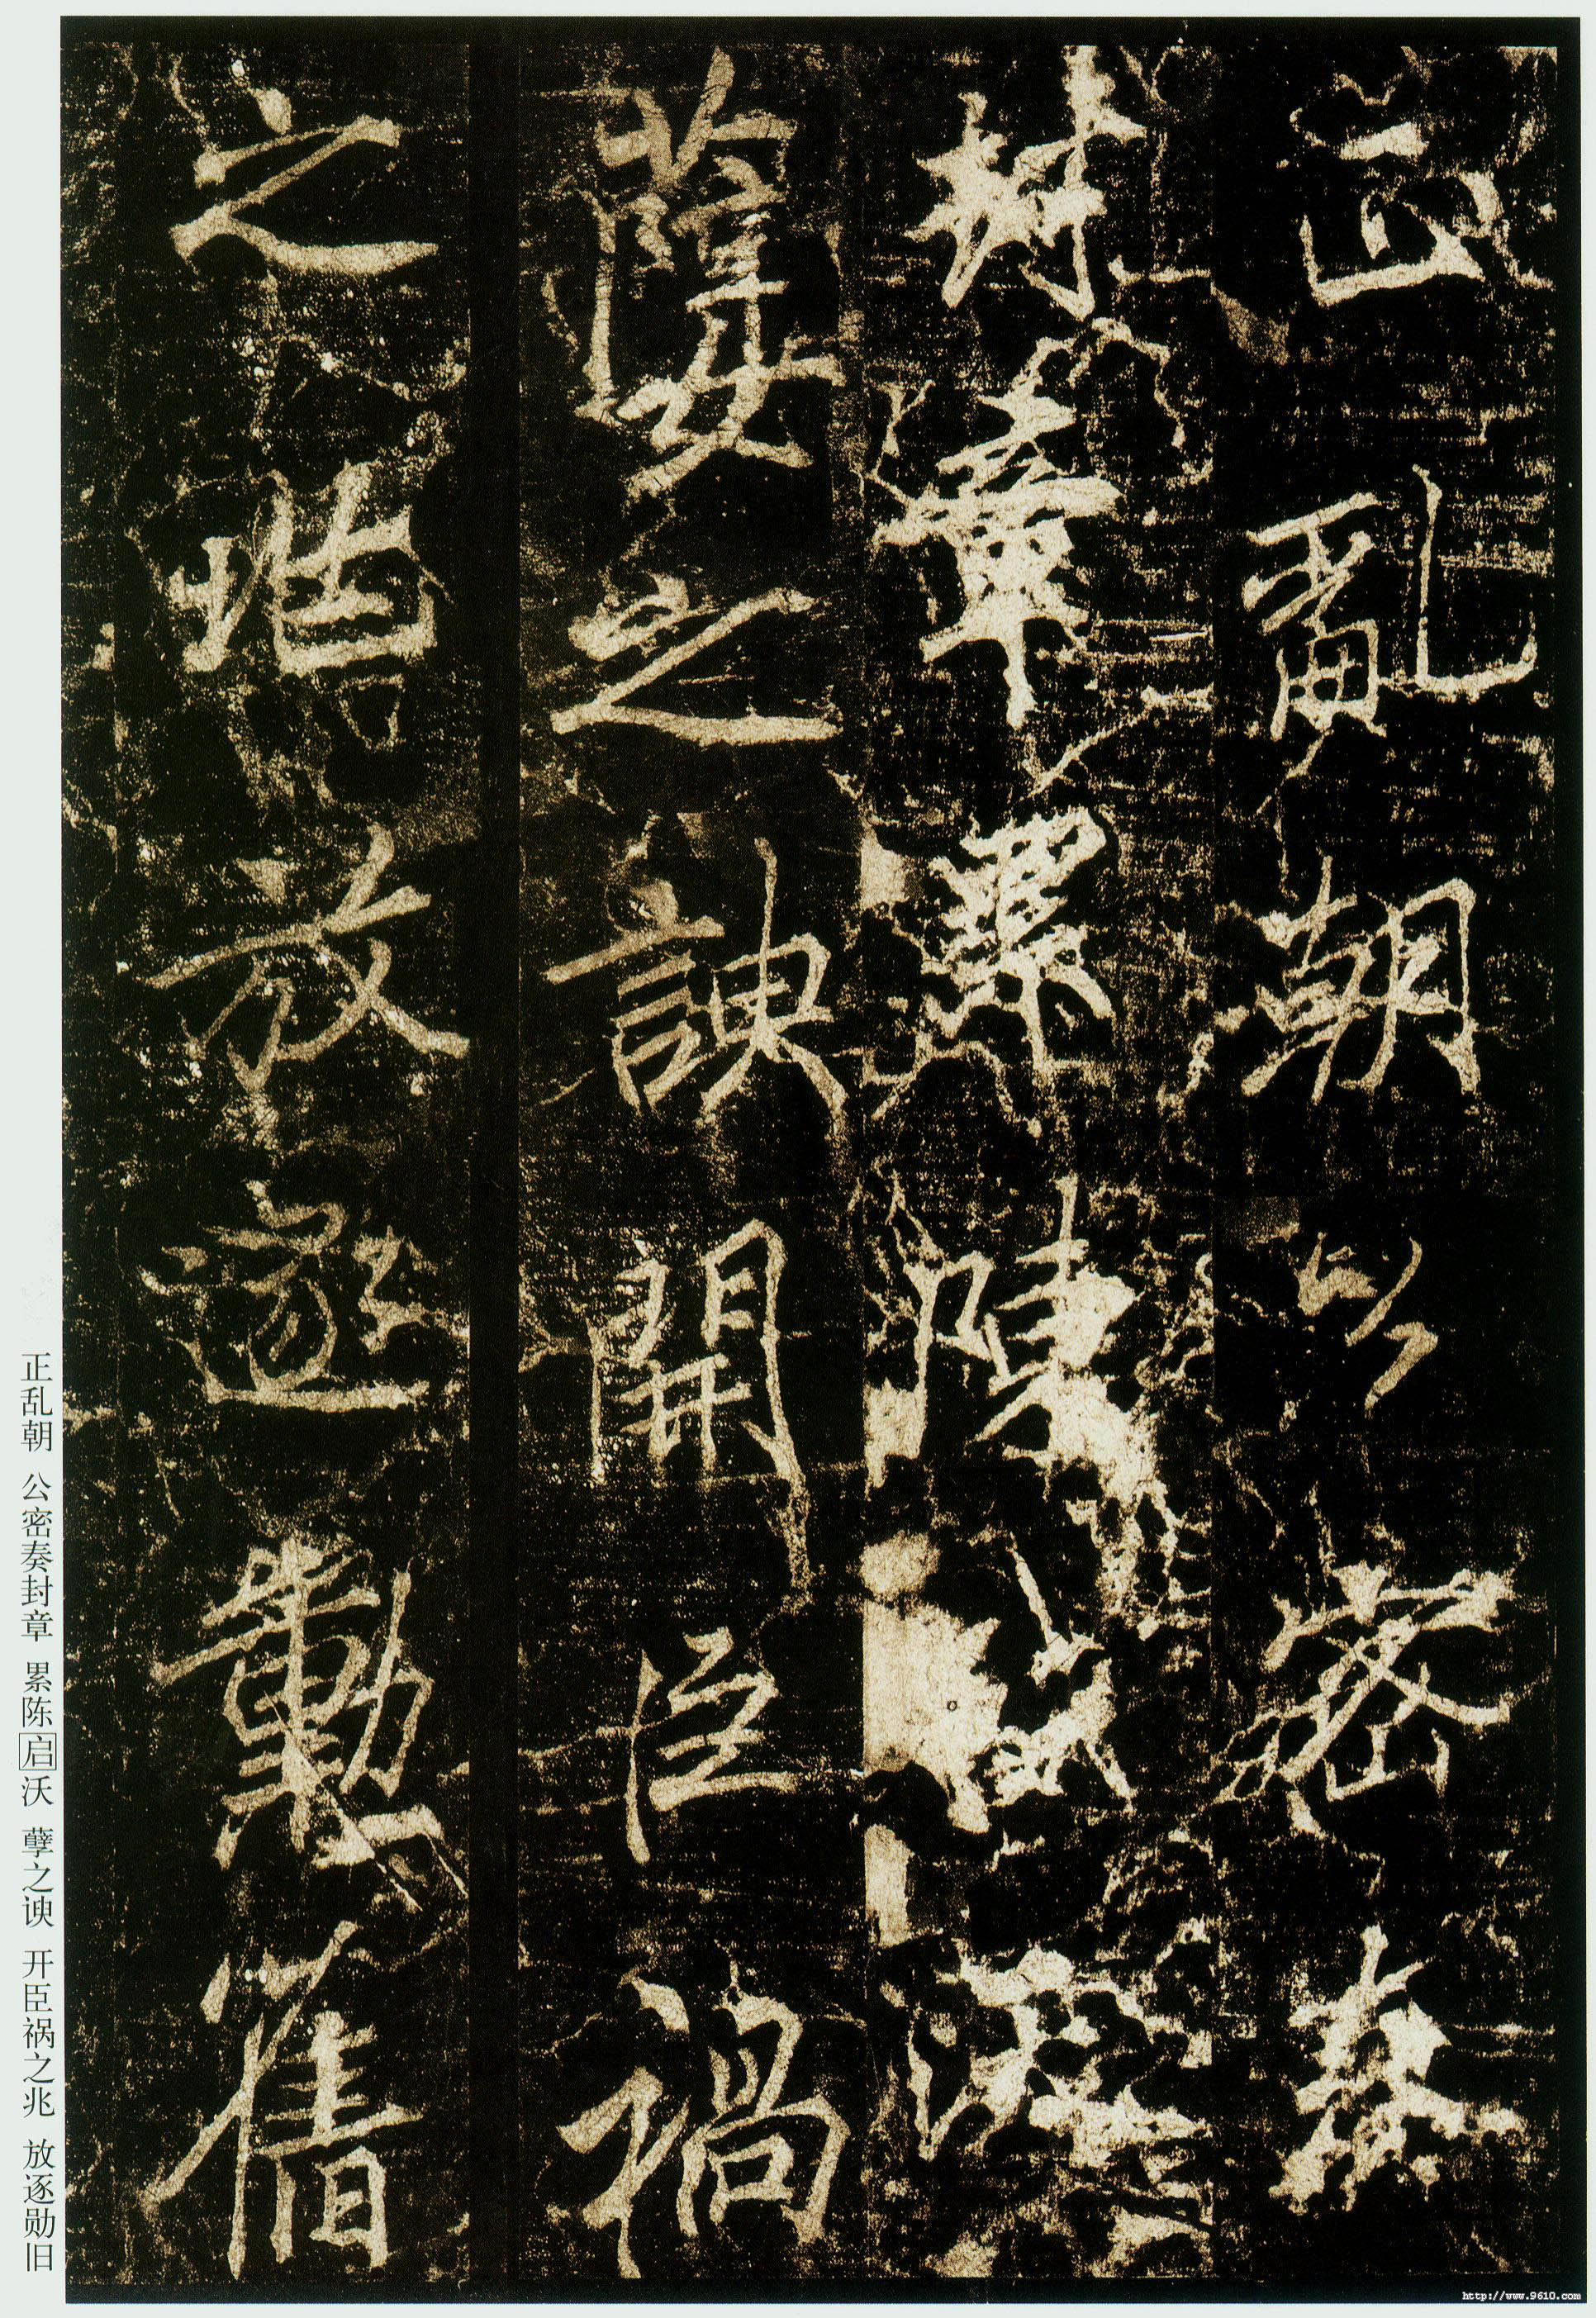 正亂朝公密奏
封章累陳沃
孽之諛開臣禍
之堦放逐勳舊
正乱朝 公密奏封章 累陈启沃 孽之谀 开臣祸之兆 放逐勋旧
http://www.9610.com